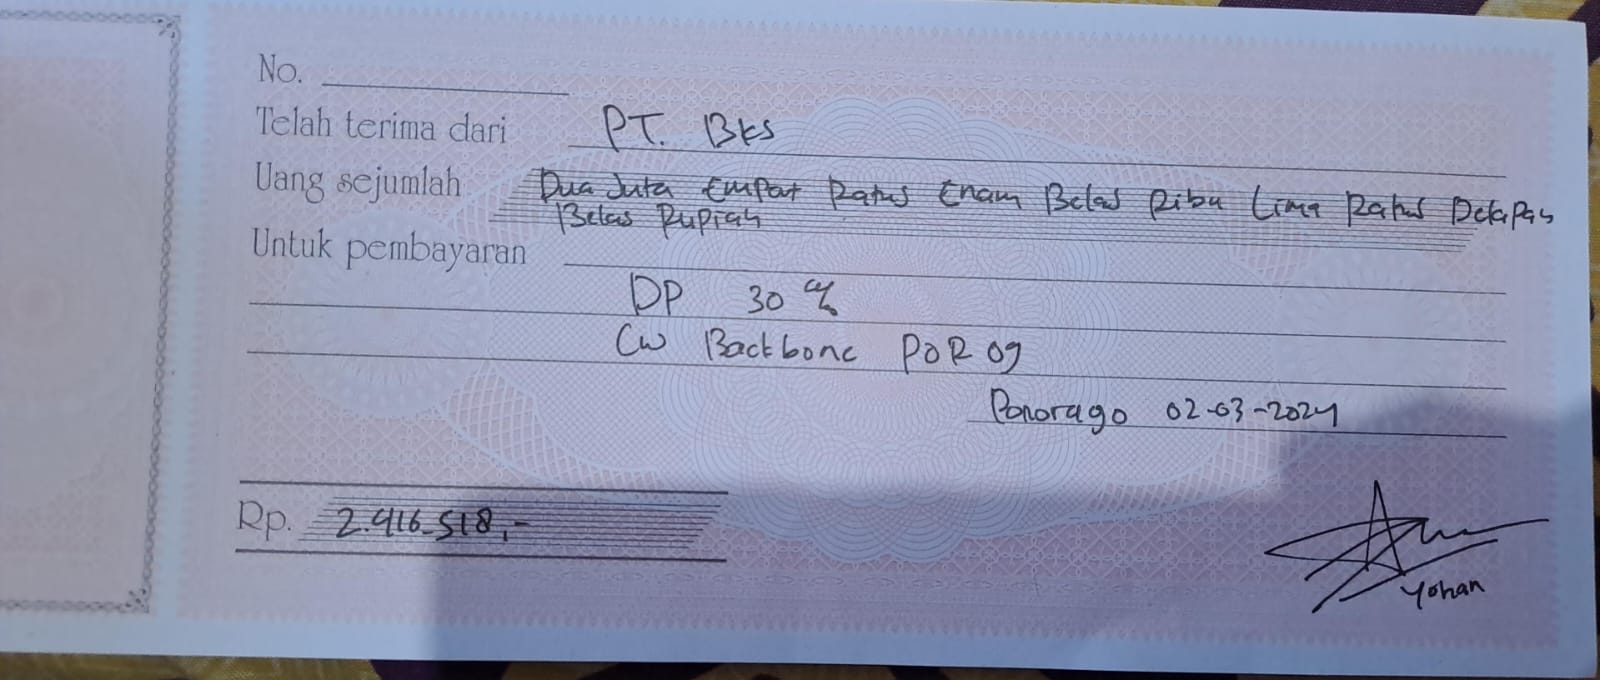 No.
Telah terima dari PT. Bks
Uang sejumlah Dua Juta Empat Ratus Enam Belas Ribu Lima Ratus Delapan
Belas Rupiah
Untuk pembayaran
DP 30 %
CW Backbone POR 09
Ponorogo 02-03-2024
Rp. 2.416.518,-
Yohan